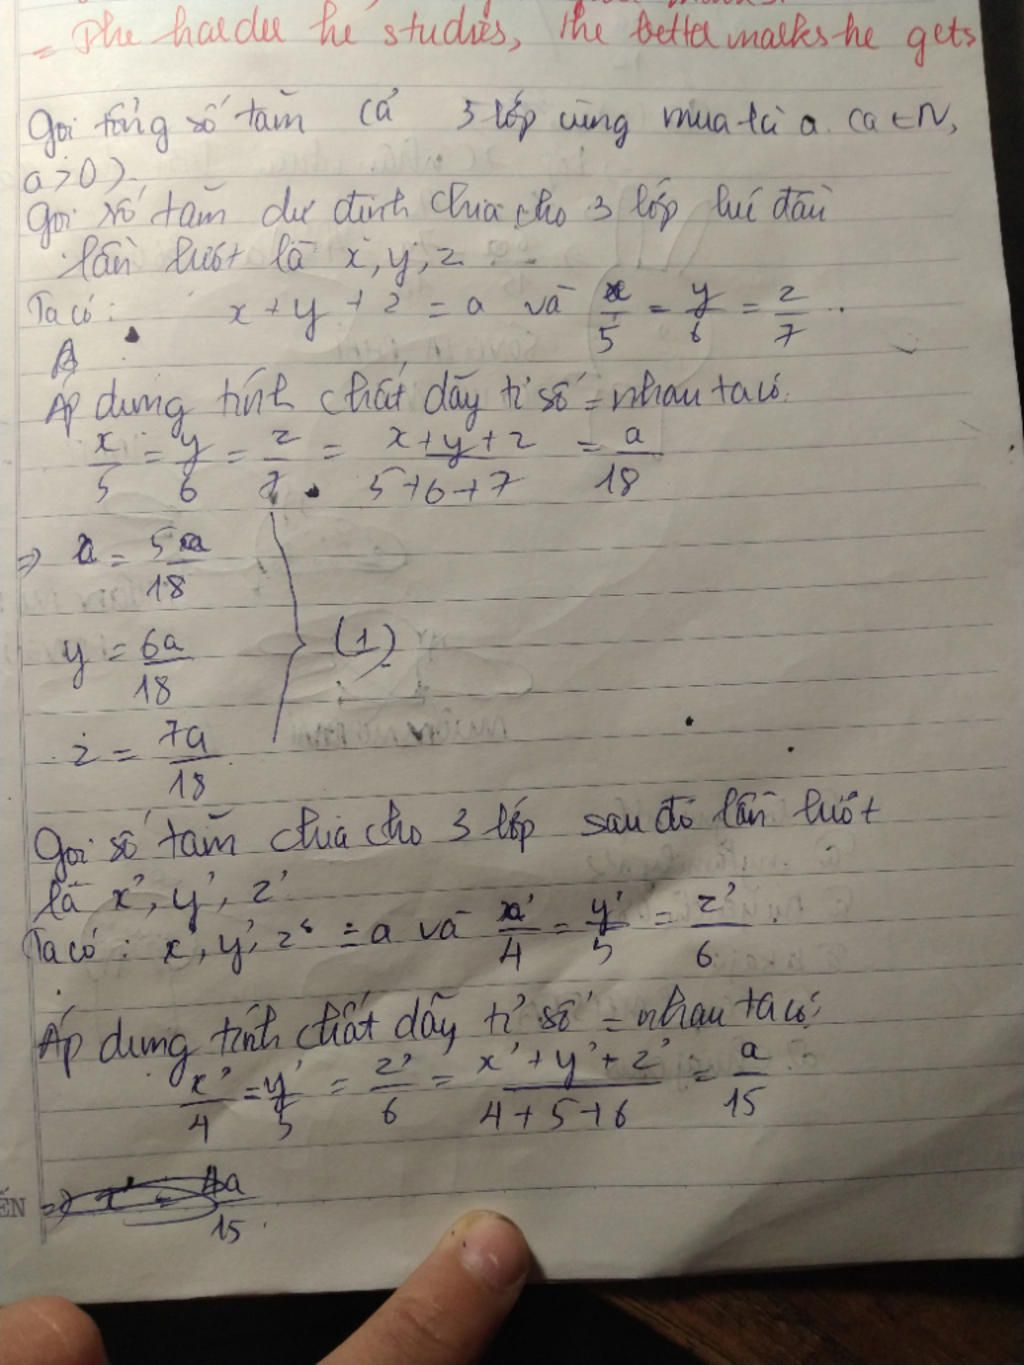 = The harder he studies, the better marks he gets
Gọi tổng số tăm cả 3 lớp cùng mua là a (a ∈ N,
a > 0).
Gọi số tăm dự định chia cho 3 lớp lúc đầu
lần lượt là x, y, z
Ta có: x + y + z = a và x/5 = y/6 = z/7.
Áp dụng tính chất dãy tỉ số = nhau ta có:
x/5 = y/6 = z/7 = x+y+z/5+6+7 = a/18
=> x = 5a/18
y = 6a/18 (1)
z = 7a/18
Gọi số tăm chia cho 3 lớp sau đó lần lượt
là x', y', z'
Ta có: x, y', z' = a và x'/4 = y'/5 = z'/6
Áp dụng tính chất dãy tỉ số = nhau ta có:
x'/4 = y'/5 = z'/6 = x'+y'+z'/4+5+6 = a/15
=> x' = 4a/15
ẾN